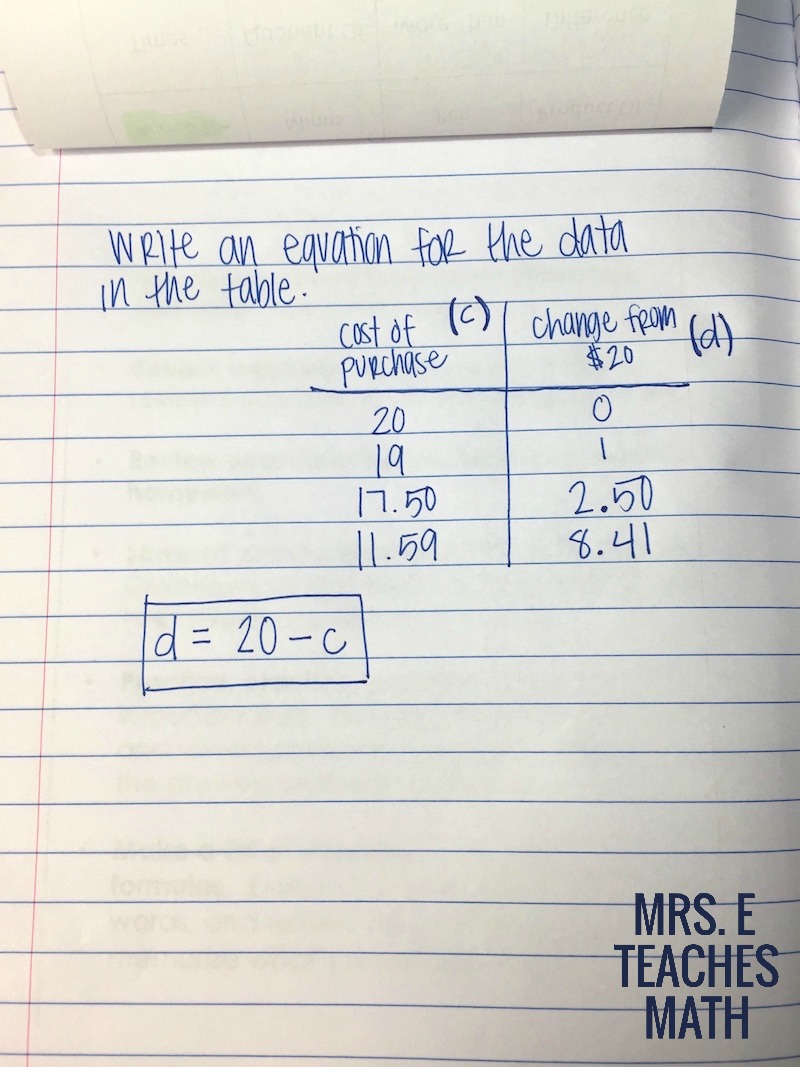 Write an equation for the data
in the table.
cost of purchase (c) | change from $20 (d)
20 | 0
19 | 1
17.50 | 2.50
11.59 | 8.41
d = 20 - c
MRS. E
TEACHES
MATH